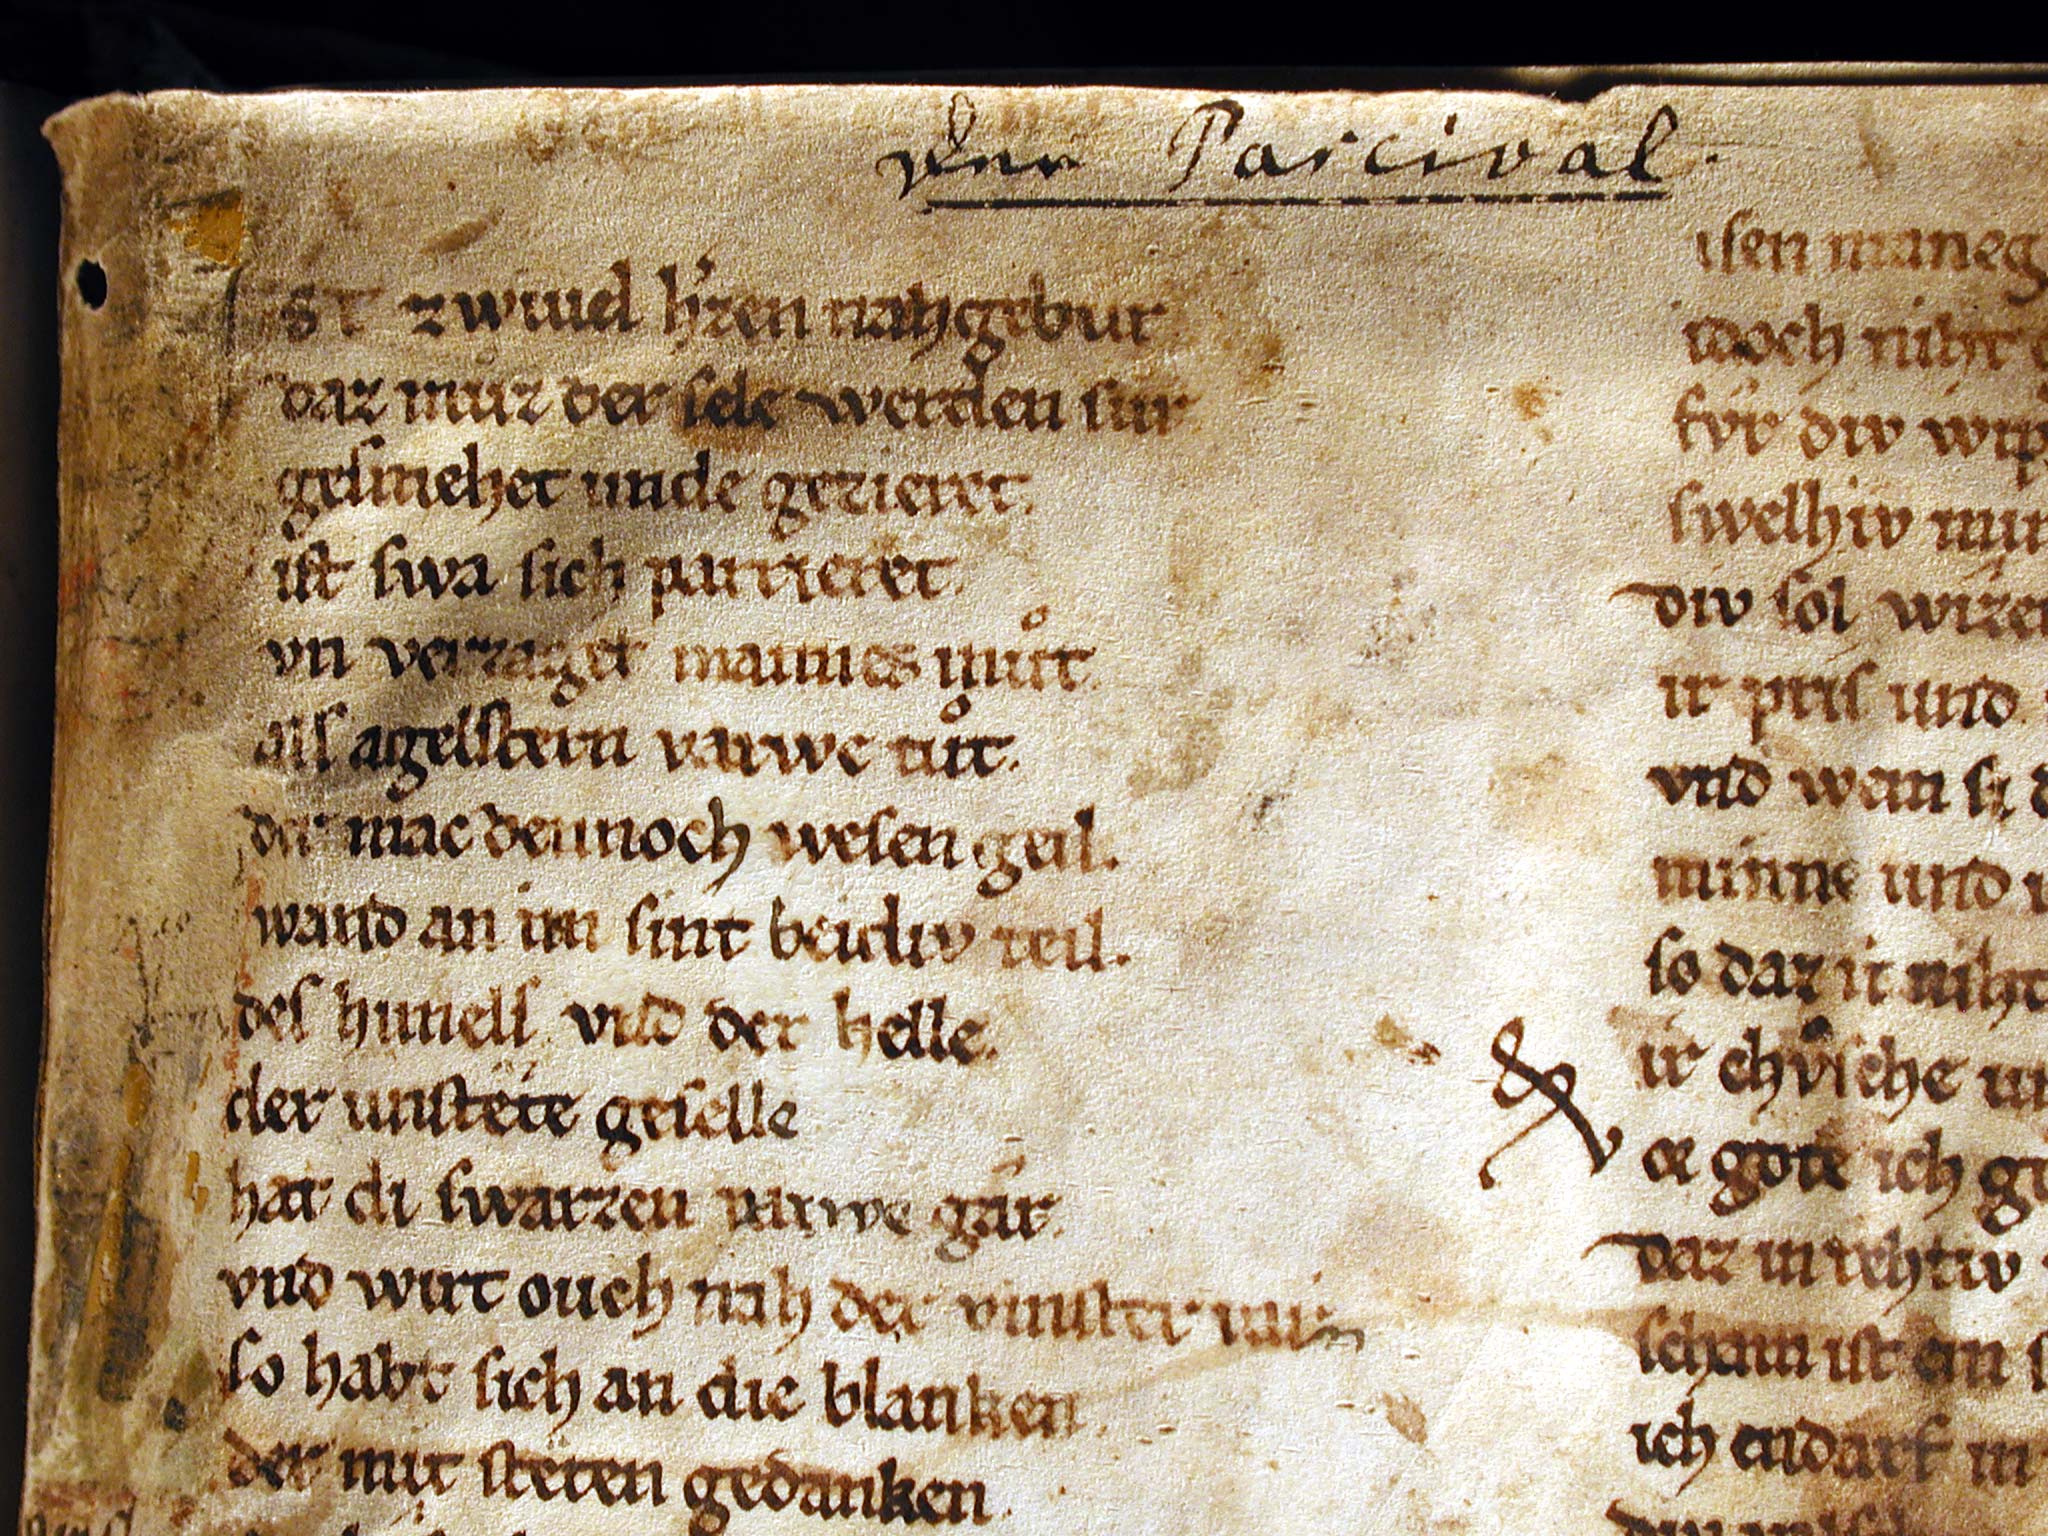 von Parcival.
ST zwiuel h'zen nahgebur
daz muz der sele werden sur
gesmehet unde gezieret.
ist swa sich parrieret.
vn verzaget mannes můt.
als agelstern varwe tůt.
der mac dennoch wesen geil.
wand an im sint beidiv teil.
des himels vnd der helle.
der unstete geselle
hat di swarzen varwe gar.
vnd wirt ouch nah der vinster var
so habt sich an die blanken.
der mit steten gedanken
isen maneg
idoch niht
fvr div wip
swelhiv min
div sol wizen
ir pris und
vnd wem si d
minne und
so daz ir niht
ir chvsche un
vor gote ich
daz in rehtiv
scham ist ein s
ich endarf in